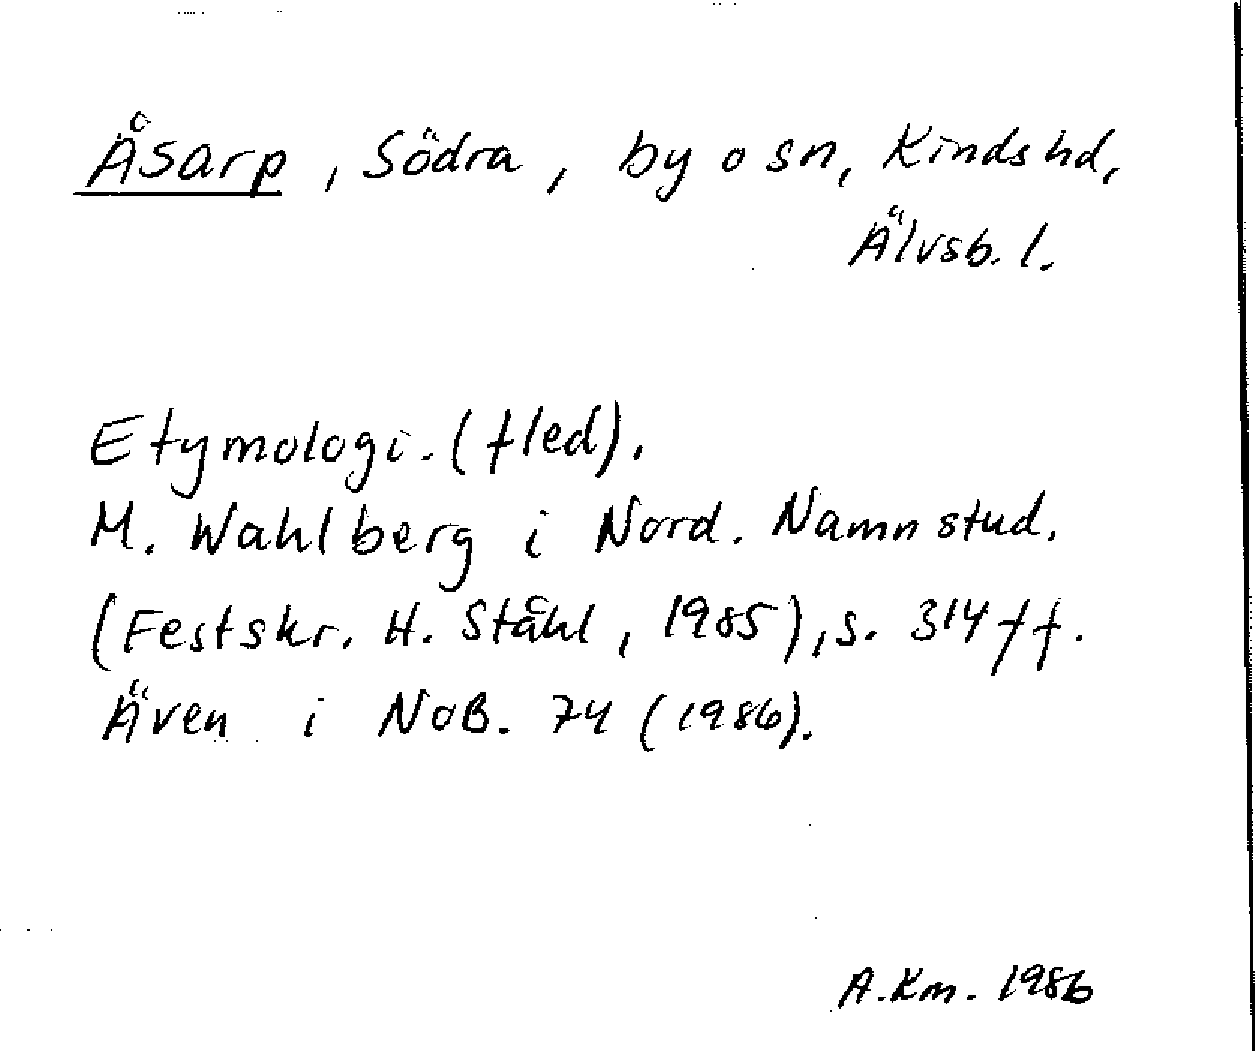 Åsarp, Södra, by o sn, Kinds hd,
Älvsb. l.
Etymologi. (fled).
M. Wahlberg i Nord. Namnstud.
(Festskr. H. Ståhl, 1985), s. 314 ff.
Även i NoB. 74 (1986).
A. Km. 1986